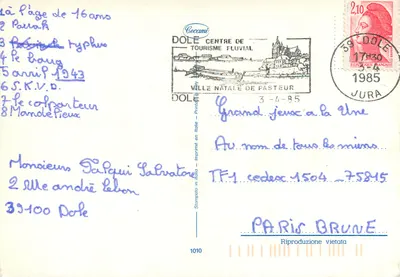 1 à l'âge de 16 ans
2 Burak
3 typhus
4 le bourg
5 avril 1943
6 S.K.V.D.
7 le colporteur
8 Mandetieux
Monsieur Salvatore
2 Rue andré lebon
39100 Dole
Ceccami
DOLE CENTRE DE
TOURISME FLUVIAL
VILLE NATALE DE PASTEUR
DOLE 3-4-85
2,10
39 DOLE
17H30
3-4
1985
JURA
Grand jeux a la Une
Au nom de tous les miens
TF1 cedex 1504-75815
PARIS BRUNE
1010
Riproduzione vietata